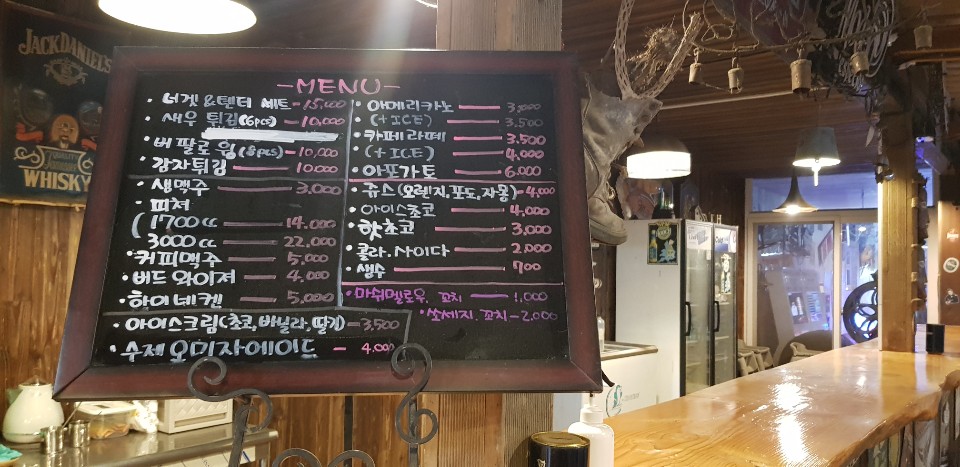 JACK DANIEL'S
WHISKY
-MENU-
· 너겟 & 텐더 세트 - 15,000
· 새우 튀김 (6pcs) - 10,000
· 버팔로 윙 (8pcs) - 10,000
· 감자튀김 10,000
· 생맥주 3,000
· 피져
( 1700 cc 14.000
3000 cc 22,000
· 커피맥주 5,000
· 버드 와이저 4,000
· 하이네켄 5,000
· 아이스크림 (초코, 바닐라, 딸기) - 3,500
· 수제 오미자에이드 - 4.000
· 아메리카노 3,000
(+ICE) 3.500
· 카페라떼 3,500
· (+ICE) 4,000
· 아포가토 6,000
· 쥬스 (오렌지, 포도, 자몽) - 4,000
· 아이스초코 4,000
· 핫초코 3,000
· 콜라. 사이다 2.000
· 생수 700
· 마쉬멜로우. 꼬치 1,000
· 쏘세지. 꼬치 - 2,000